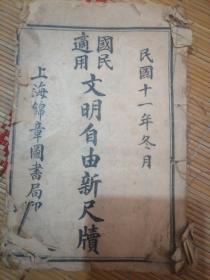 民國十一年冬月
國民
適用
文明自由新尺牘
上海錦章圖書局印